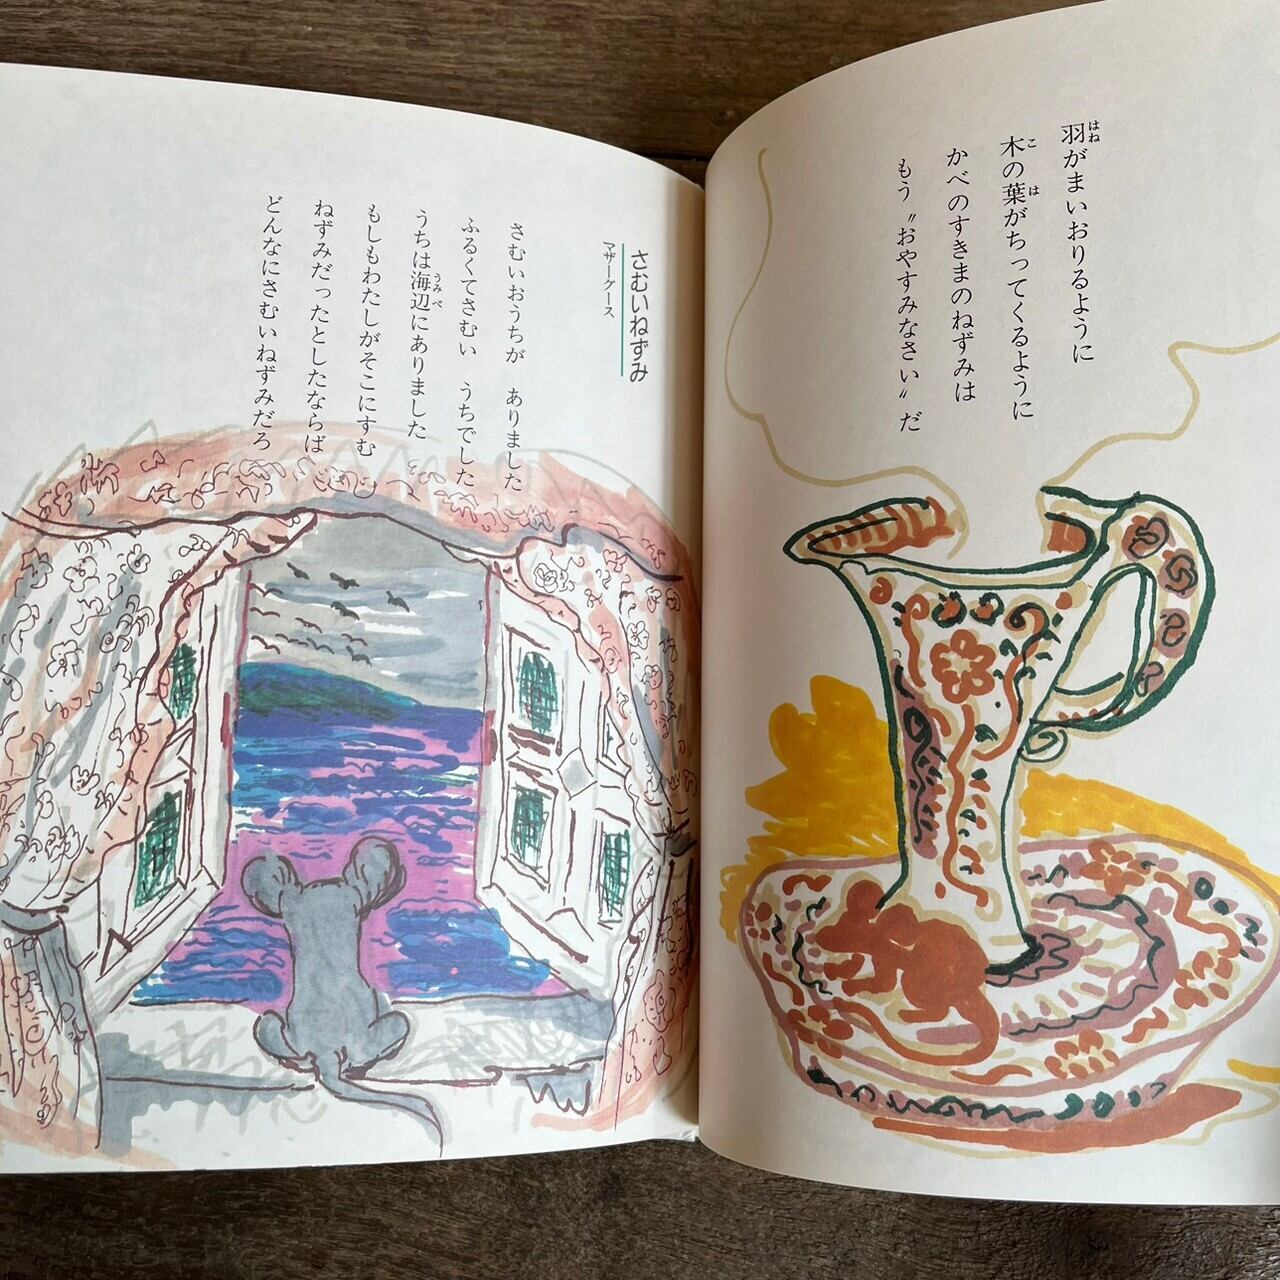 羽がまいおりるように
木の葉がちってくるように
かべのすきまのねずみは
もう〝おやすみなさい〟だ
さむいねずみ
マザーグース
さむいおうちが　ありました
ふるくてさむい　うちでした
うちは海辺にありました
もしもわたしがそこにすむ
ねずみだったとしたならば
どんなにさむいねずみだろ